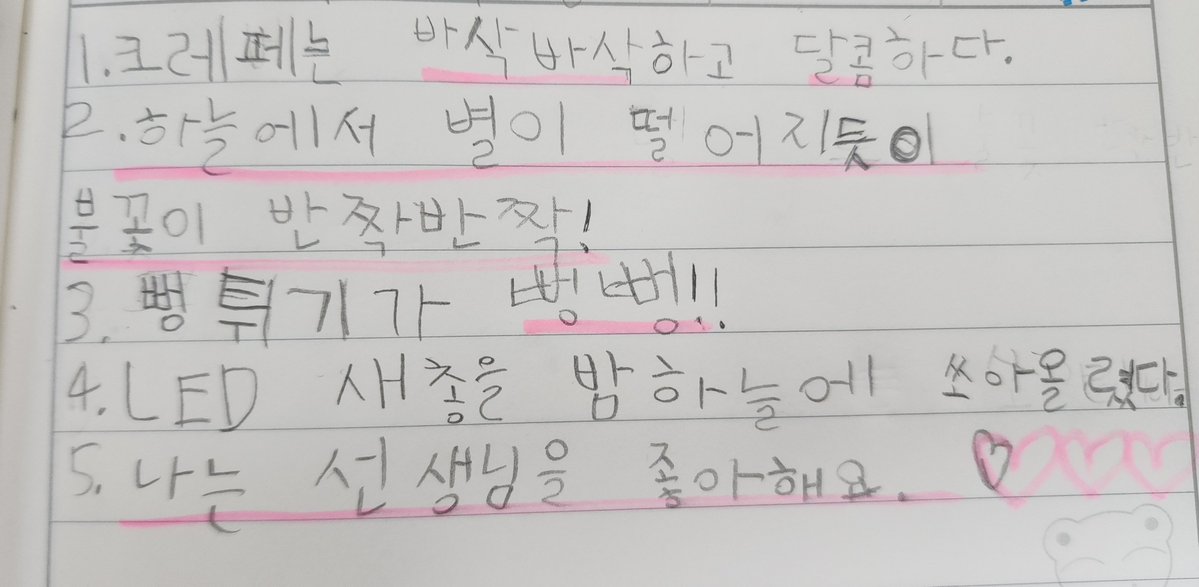 1. 크레페는 바삭바삭하고 달콤하다.
2. 하늘에서 별이 떨어지듯이
불꽃이 반짝반짝!
3. 뻥튀기가 뻥뻥!!
4. LED 새총을 밤하늘에 쏘아올렸다.
5. 나는 선생님을 좋아해요.